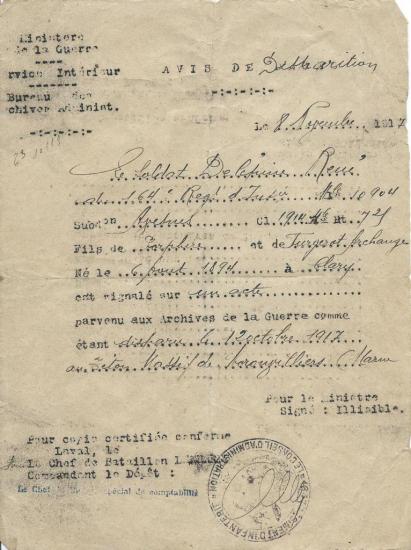 Ministère
de la Guerre
Service Intérieur
Bureau des
Archives Administ.
AVIS DE Disparition
Le 8 Novembre 1917
Le Soldat René
du 164e Régt d'Infie Mle 10904
Subdon Cl. 1914 Mle Rt. 724
Fils de et de Turpot
Né le 6 août 1894 à Clary
est signalé sur un acte
parvenu aux Archives de la Guerre comme
étant disparu le 12 octobre 1917
au Massif de (Marne
Pour le Ministre
Signé : Illisible.
Pour copie certifiée conforme
Laval, le
Le Chef de Bataillon
Commandant le Dépôt :
Le Chef spécial de comptabilité
LE CONSEIL D'ADMINISTRATION
REGIMENT D'INFANTERIE